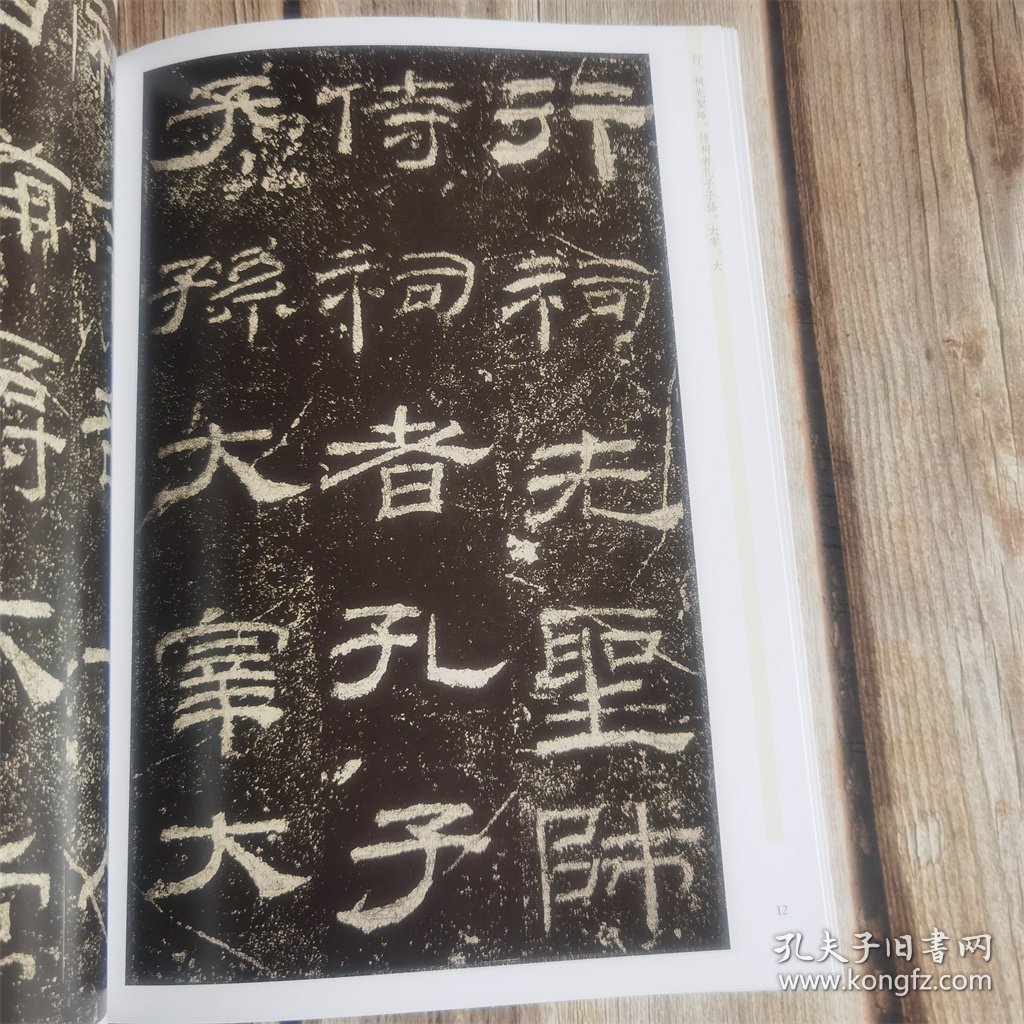 行祠先聖師
侍祠者孔子
子孫大宰大
行祠先聖師。侍祠者孔子子孫、大宰、大
12
孔夫子旧書网
www.kongfz.com